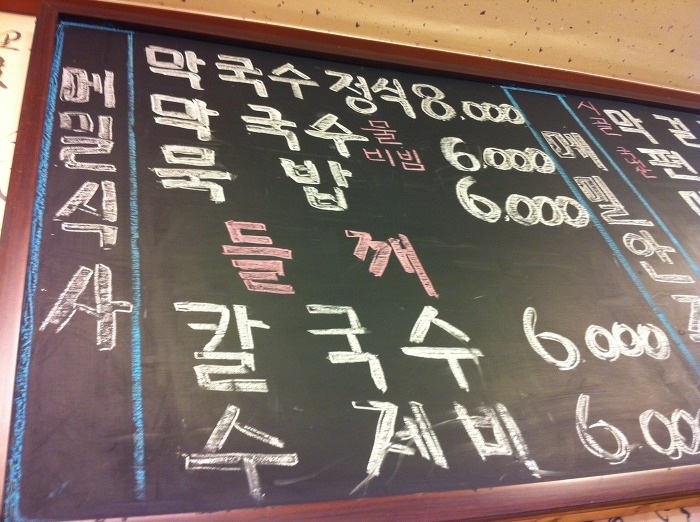 메밀식사
막국수정식 8,000
막국수 물 비빔 6,000
묵밥 6,000
들깨
칼국수 6,000
수제비 6,00
메밀안
시골
막걸
편